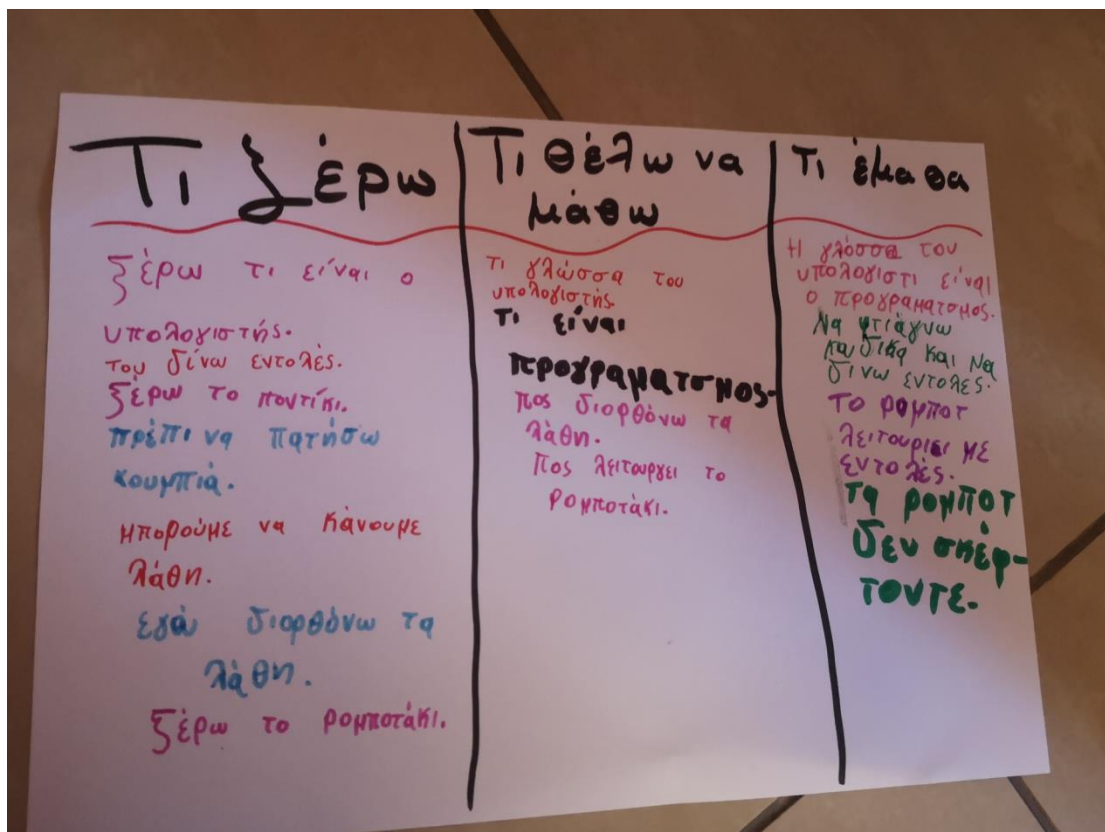 Τι ξέρω
ξέρω τι είναι ο
υπολογιστής.
του δίνω εντολές.
ξέρω το ποντίκι.
πρέπι να πατήσω
κουμπιά.
μπορούμε να κάνουμε
λάθη.
εγώ διορθόνω τα
λάθη.
ξέρω το ρομποτάκι.
Τι θέλω να
μάθω
τι γλώσσα του
υπολογιστής.
τι είναι
προγραματσμος.
πος διορθόνω τα
λάθη.
Πος λειτουργει το
ρομποτάκι.
Τι έμαθα
Η γλόσσα του
υπολογιστι είναι
ο προγραματσμος.
Να φτιάγνω
κωδικα και να
δίνω εντολες.
Το ραμποτ
λειτουριει με
εντολές.
τα ρομποτ
δεν σκέφ-
τοντε.